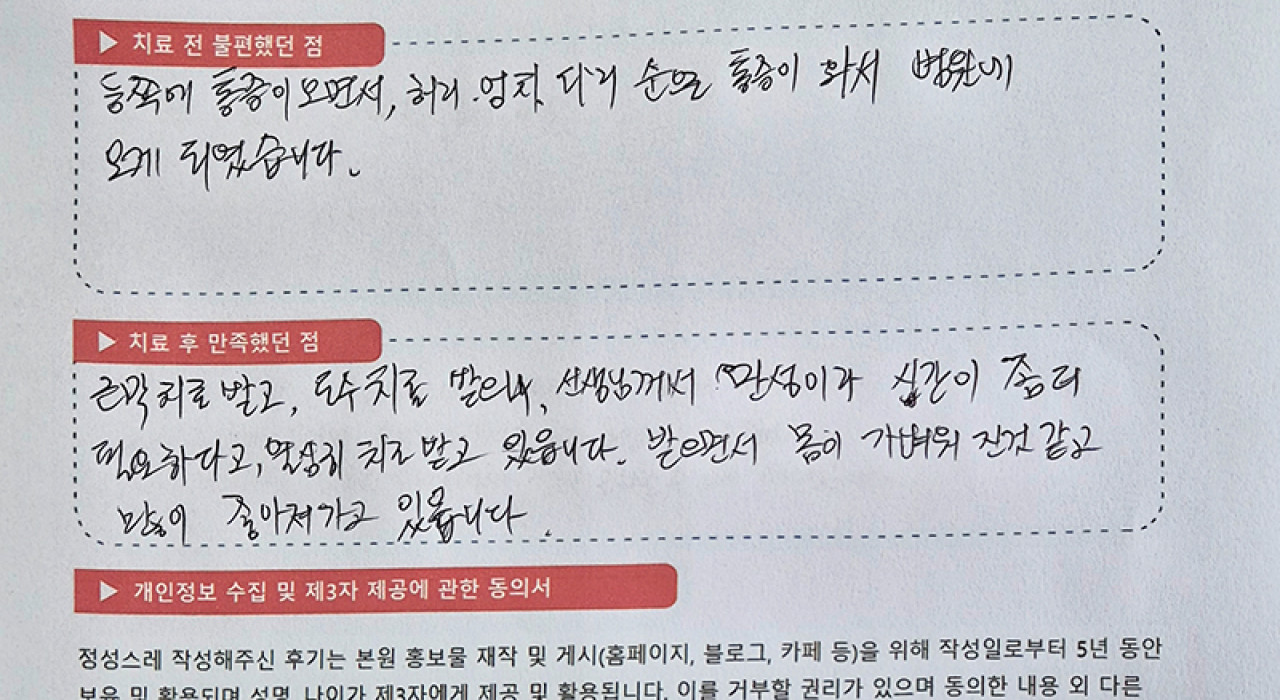 ▶ 치료 전 불편했던 점
등쪽에 통증이 오면서, 허리. 엉치 다리 순으로 통증이 와서 병원에
오게 되였습니다.
▶ 치료 후 만족했던 점
근막치료 받고, 도수치료 받으며, 선생님께서 만성이라 시간이 좀 더
필요하다고, 열심히 치료 받고 있읍니다. 받으면서 몸이 가벼워 진것 같고
많이 좋아져가고 있읍니다.
▶ 개인정보 수집 및 제3자 제공에 관한 동의서
정성스레 작성해주신 후기는 본원 홍보물 재작 및 게시(홈페이지, 블로그, 카페 등)을 위해 작성일로부터 5년 동안
보유 및 활용되며 성명, 나이가 제3자에게 제공 및 활용됩니다. 이를 거부할 권리가 있으며 동의한 내용 외 다른